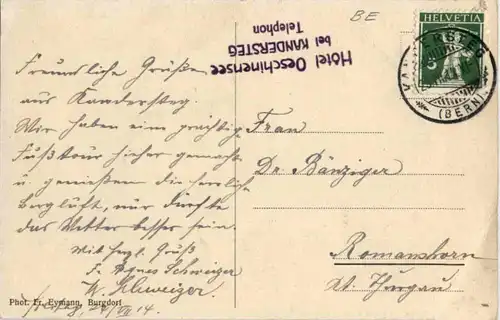 BE
HELVETIA
KANDERSTEG
(BERN)
Hôtel Oeschinensee
bei KANDERSTEG
Telephon
Freundliche Grüße
aus Kandersteg.
Wir haben eine prächtige
Fußtour hieher gemacht
u. genießen die herrliche
Bergluft, nur dürfte
das Wetter besser sein.
Mit herzl. Gruß
F. Agnes Schweizer
W. Schweizer.
14.
Frau
Dr. Bänziger
Romanshorn
Kt. Thurgau
Phot. Fr. Eymann, Burgdorf